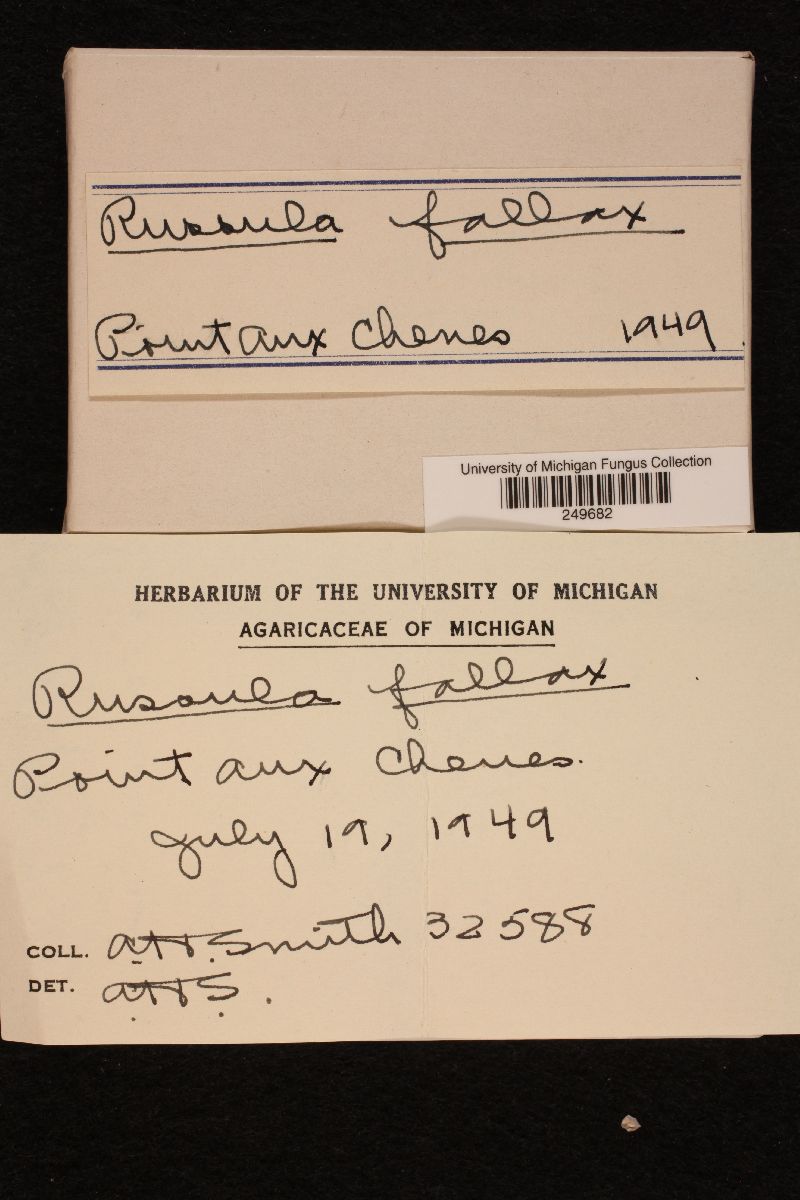 Russula fallax
Point aux Chenes 1949
University of Michigan Fungus Collection
249682
HERBARIUM OF THE UNIVERSITY OF MICHIGAN
AGARICACEAE OF MICHIGAN
Russula fallax
Point aux Chenes.
July 19, 1949
COLL. AH Smith 32588
DET. AHS.